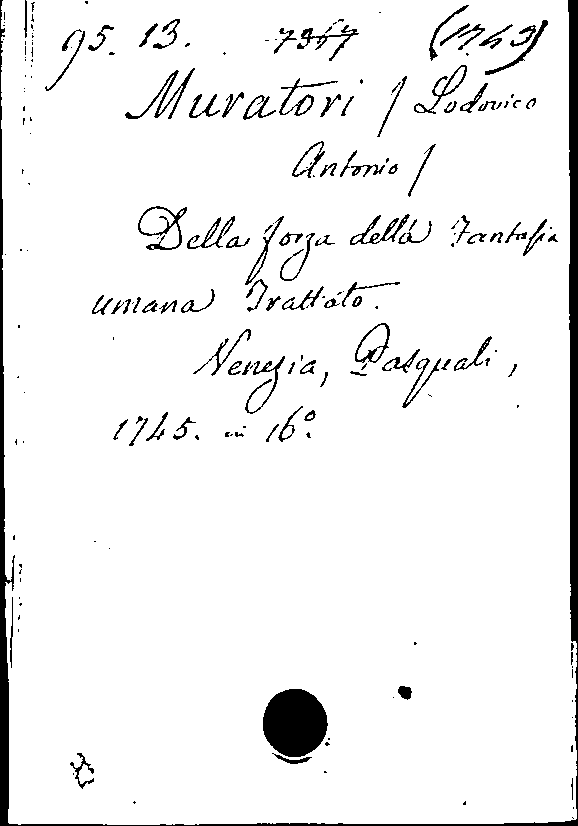 95. 13. 7367 (1743)
Muratori / Lodovico
Antonio /
Della forza della Fantasia
umana Trattato.
Venezia, Pasquali,
1745. in 16º.